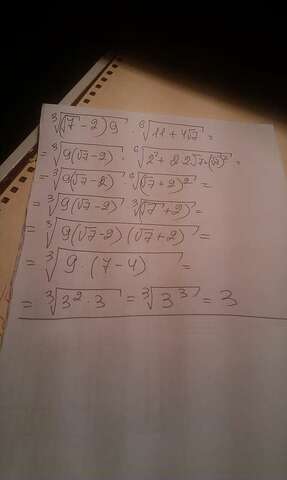 ∛((√7 - 2)9) · ⁶√(11 + 4√7) =
= ∛(9(√7 - 2)) · ⁶√(2² + 2·2√7 + (√7)²) =
= ∛(9(√7 - 2)) · ⁶√((√7 + 2)²) =
= ∛(9(√7 - 2)) · ∛(√7 + 2) =
= ∛(9(√7 - 2)(√7 + 2)) =
= ∛(9 · (7 - 4)) =
= ∛(3² · 3) = ∛(3³) = 3